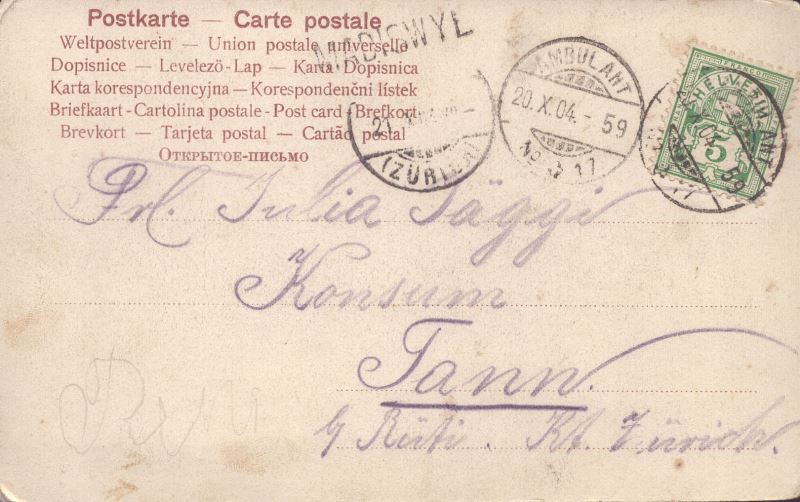 Postkarte — Carte postale
Weltpostverein — Union postale universelle
Dopisnice — Levelező-Lap — Karta Dopisnica
Karta korespondencyjna — Korespondenčni lístek
Briefkaart - Cartolina postale - Post card - Brefkort
Brevkort — Tarjeta postal — Cartāo postal
Открытое-письмо
WYL
(ZÜRICH)
AMBULANT
20.X.04.-59
No 17
HELVETIA
FRANCO
5
AMBULANT
Frl. Julia Jäggi
Konsum
Tann.
b/ Rüti. Kt. Zürich.